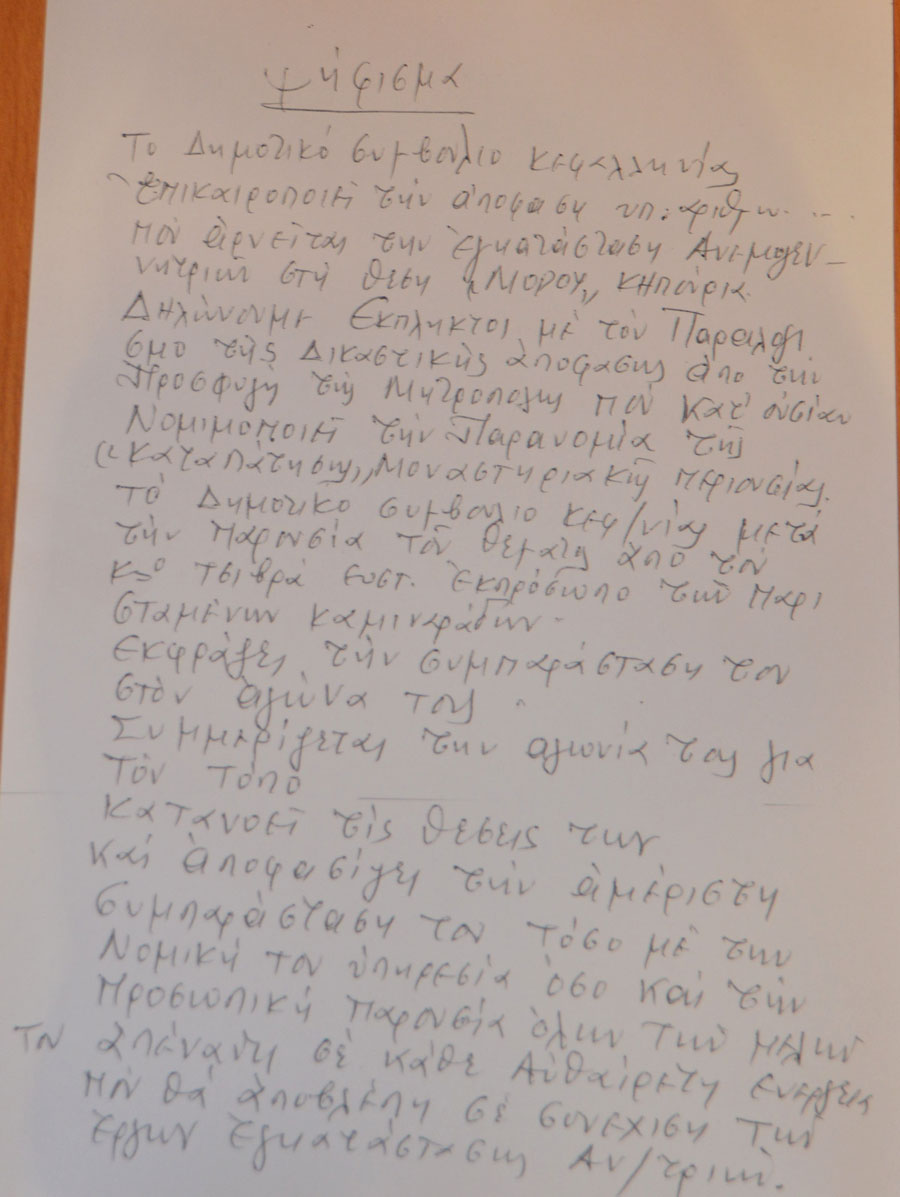 Ψήφισμα
Το Δημοτικό Συμβούλιο Κεφαλληνίας
Επικαιροποιεί την άποφαση υπ: αριθμ. ....
που άρνείται την Έγκατάσταση Ανεμογεν-
νητριών στη θεση "ΜΟΡΟΥ" Κηπούρια.
Δηλώνουμε Εκπληκτοι με τον Παραλογι
σμο της Δικαστικής άποφασης άπο την
Προσφυγή της Μητροπολης που κατ' ουσίαν
Νομιμοποιεί την Παρανομία της
"Καταπάτησης" Μοναστηριακής περιουσίας.
Τό Δημοτικο συμβουλιο Κεφ/νίας μετά
την Παρουσία του θέματος άπο τον
κο Τσιβρά Ευστ. Έκπρόσωπο των Παρι
σταμένων Καμιναράτων.
Εκφράζει την συμπαράσταση του
στον άγώνα τους.
Συμμερίζεται την αγωνία τους για
Τόν Τοπο
Κατανοεί τίς θέσεις των
Καί άποφασίζει την άμέριστη
Συμπαράσταση του τόσο με την
Νομική του ύπηρεσία όσο και την
Προσωπική Παρουσία όλων των μελων
Του άπέναντι σέ κάθε Αύθαίρετη ενεργεια
που θά άποβλέπη σέ συνεχιση των
έργων έγκατάστασης Αν/τριων.